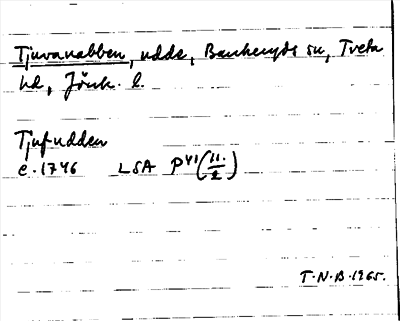 Tjuvanabben, udde, Bankeryds sn, Tveta
hd, Jönk. l.
Tjufudden
c. 1746 LSA P41 (11/2)
T.N.B. 1965.